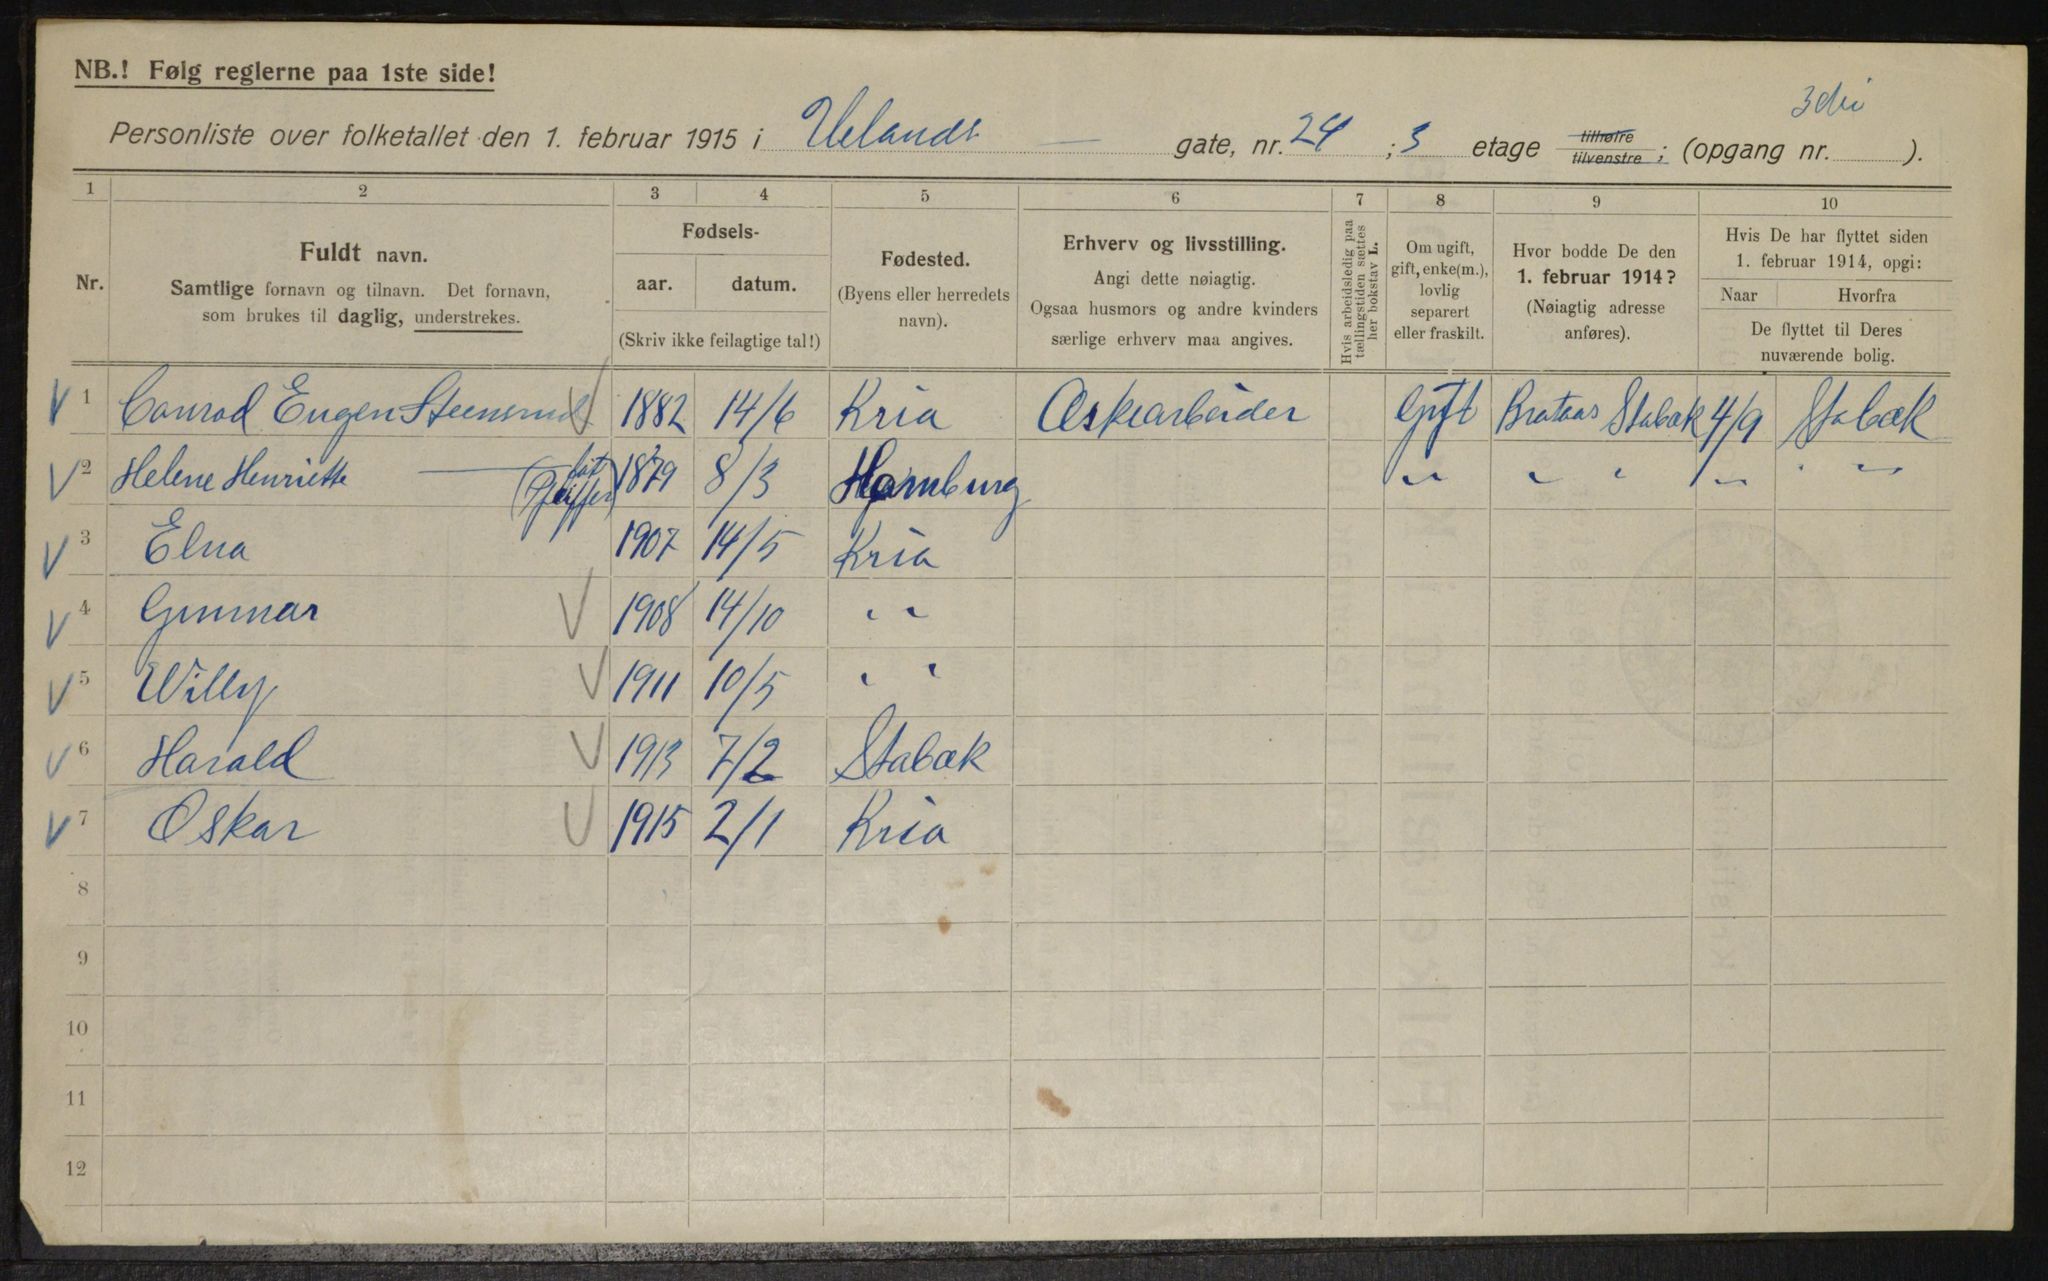 NB.! Følg reglerne paa 1ste side!
3die
Personliste over folketallet den 1. februar 1915 i Uelands — gate, nr. 24 ; 3 etage tilhøire / tilvenstre ; (opgang nr. ).
1 2 3 4 5 6 7 8 9 10
Nr.
Fuldt navn.
Samtlige fornavn og tilnavn. Det fornavn,
som brukes til daglig, understrekes.
Fødsels-
aar. datum.
(Skriv ikke feilagtige tal!)
Fødested.
(Byens eller herredets
navn).
Erhverv og livsstilling.
Angi dette nøiagtig.
Ogsaa husmors og andre kvinders
særlige erhverv maa angives.
Hvis arbeidsledig paa
tællingstiden sættes
her bokstav L.
Om ugift,
gift, enke(m.),
lovlig
separert
eller fraskilt.
Hvor bodde De den
1. februar 1914?
(Nøiagtig adresse
anføres).
Hvis De har flyttet siden
1. februar 1914, opgi:
Naar Hvorfra
De flyttet til Deres
nuværende bolig.
1 Conrad Eugen Steensrud 1882 14/6 Kria Æskearbeider Gift Brataas Stabæk 4/9 Stabæk
2 Helene Henriette — (Pfeiffer) 1879 8/3 Hamburg " " " " " " " "
3 Elna 1907 14/5 Kria
4 Gunnar 1908 14/10 " "
5 Willy 1911 10/5 " "
6 Harald 1913 7/2 Stabæk
7 Oskar 1915 2/1 Kria
8
9
10
11
12